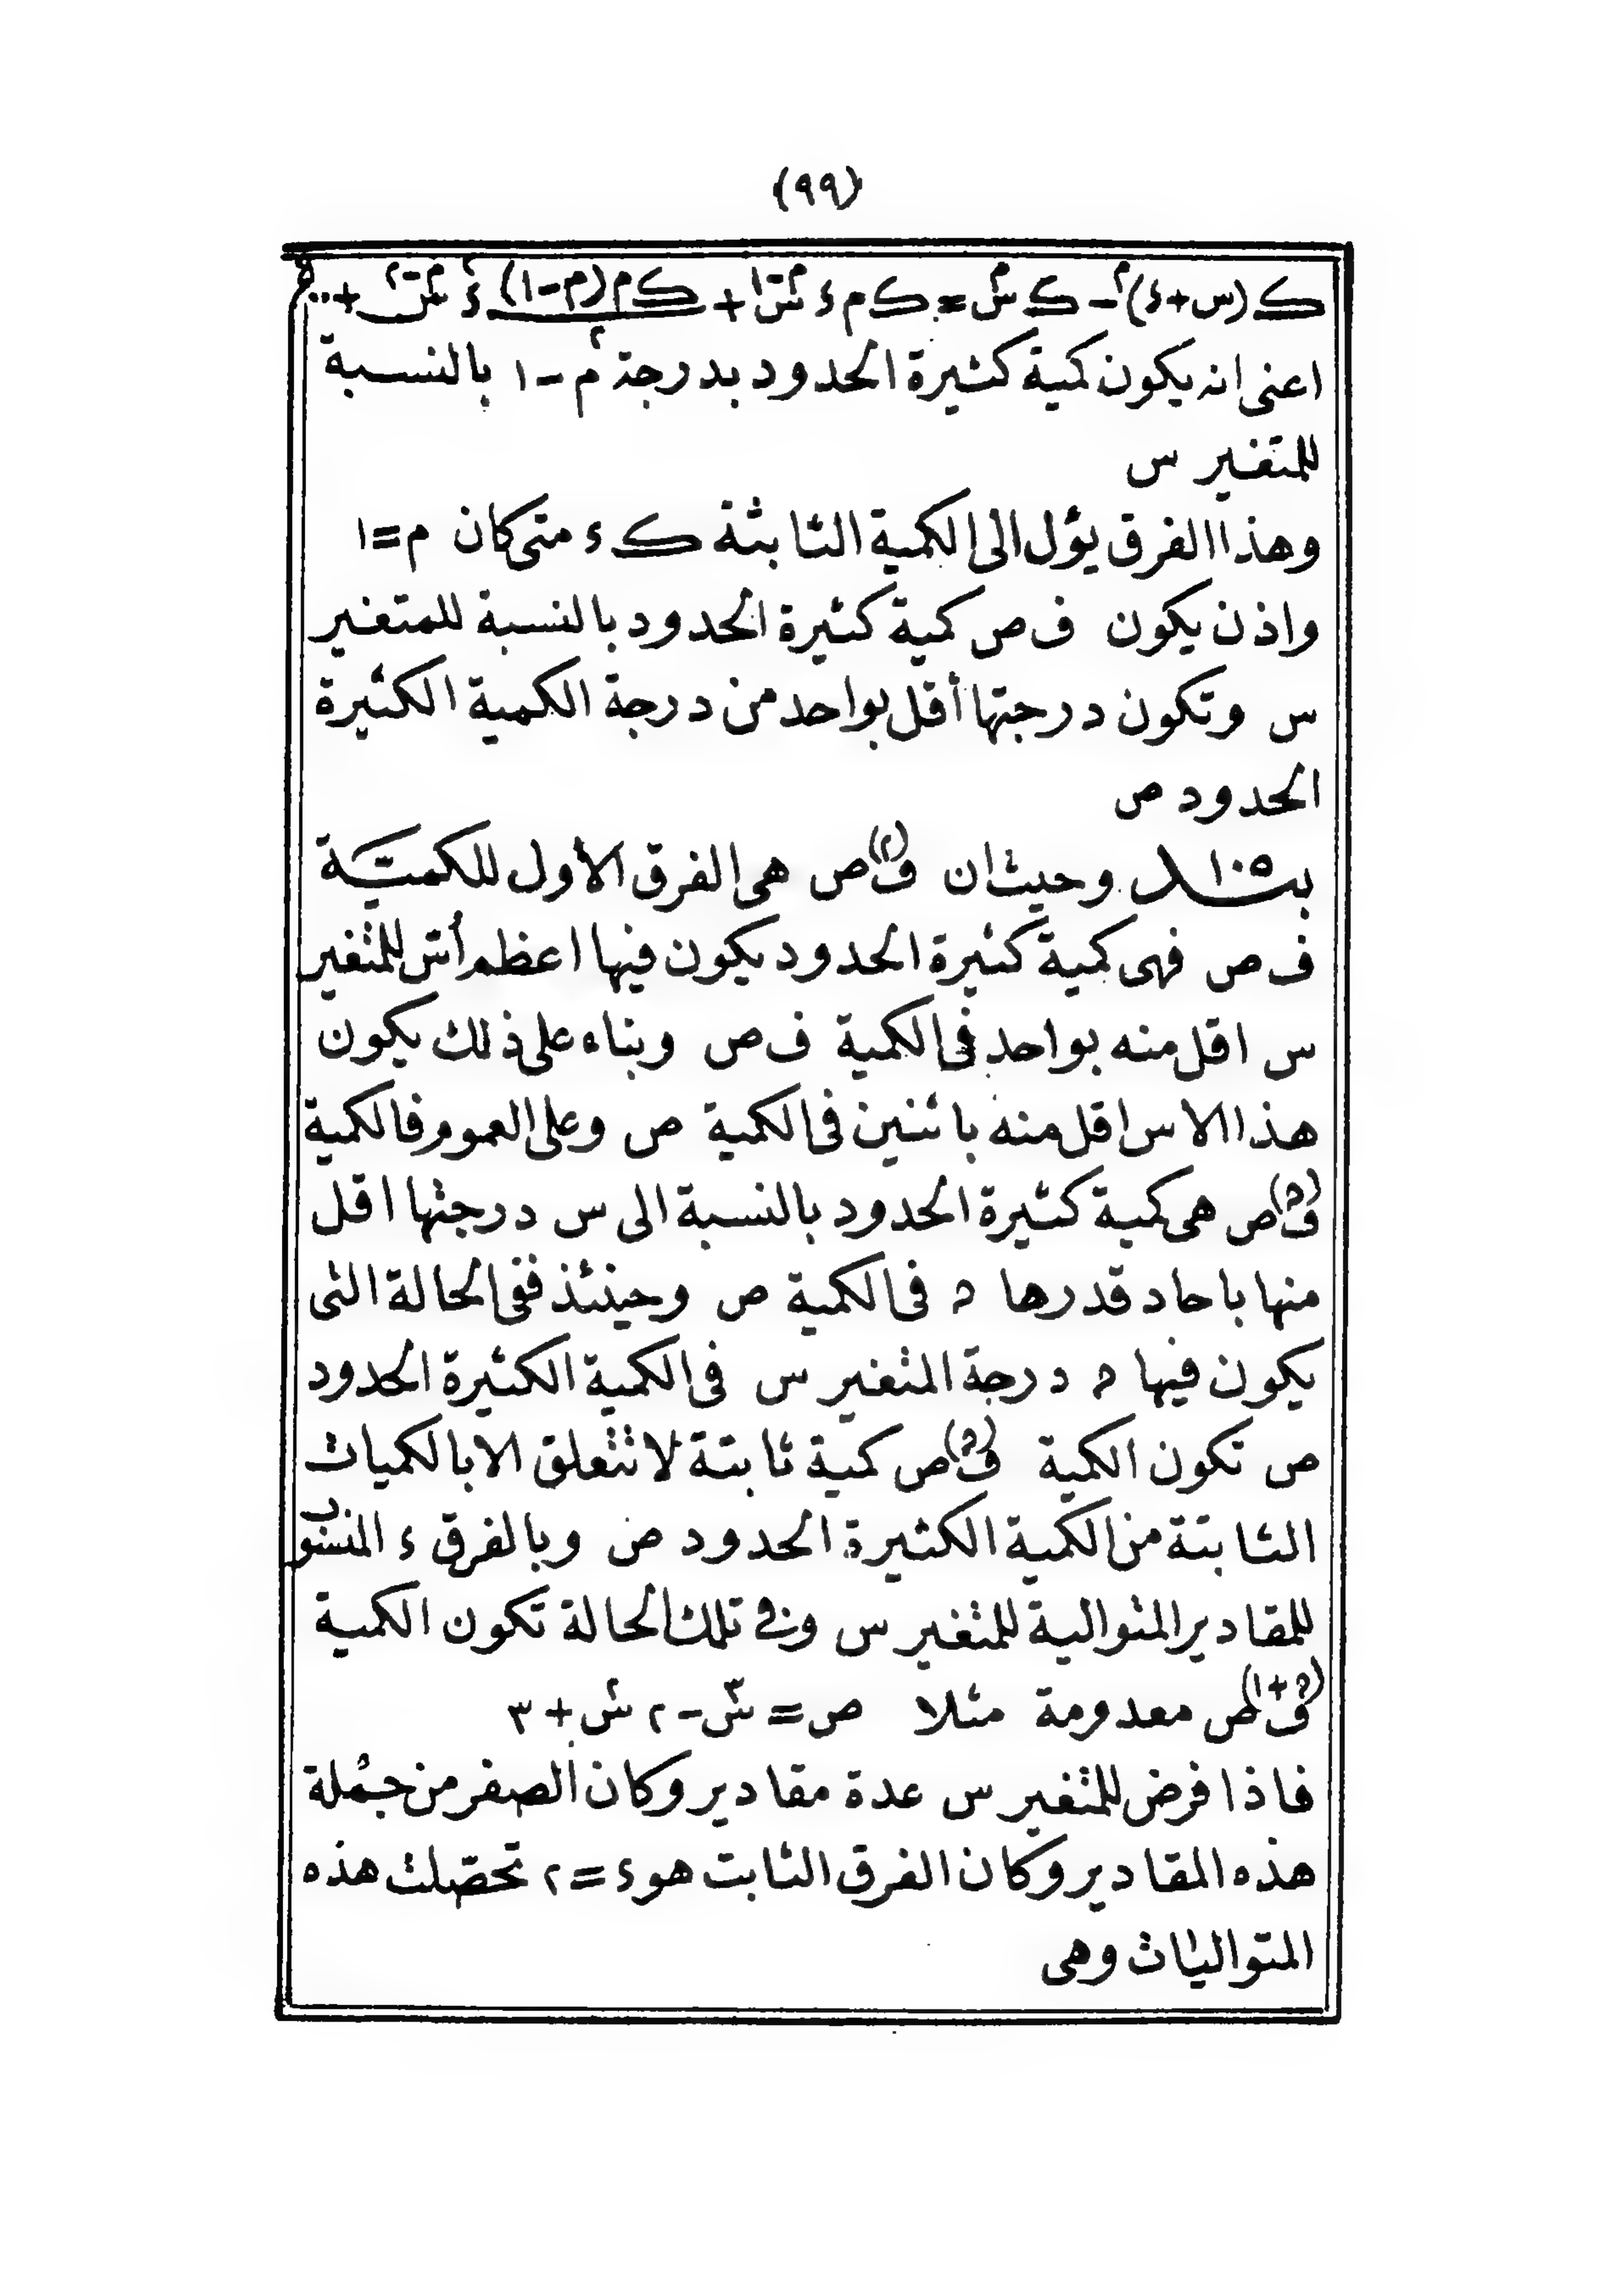 (٩٩)
ك(س+ء)^م - ك س^م = ك م ء س^(م-١) + ك م(م-١)/٢ ء^٢ س^(م-٢) + ..
اعنى انه يكون كمية كثيرة الحدود بدرجة م-١ بالنسبة
للمتغير س
وهذا الفرق يؤل الى الكمية الثابتة ك ء متى كان م=١
واذن يكون ف ص كمية كثيرة الحدود بالنسبة للمتغير
س وتكون درجتها أقل بواحد من درجة الكمية الكثيرة
الحدود ص
١٠٥ وحيث ان ف^(٢) ص هى الفرق الأول للكميّة
ف ص فهى كمية كثيرة الحدود يكون فيها اعظم أسّ للمتغير
س اقل منه بواحد فى الكمية ف ص وبناء على ذلك يكون
هذا الاس اقل منه باثنين فى الكمية ص وعلى العموم فالكمية
ف^(ﮦ) ص هى كمية كثيرة الحدود بالنسبة الى س درجتها اقل
منها باحاد قدرها ﮦ فى الكمية ص وحينئذ ففى الحالة التى
يكون فيها ﮦ درجة المتغير س فى الكمية الكثيرة الحدود
ص تكون الكمية ف^(ﮦ) ص كمية ثابتة لا تتعلق الا بالكميات
الثابتة من الكمية الكثيرة الحدود ص وبالفرق ء المنسوب
للمقادير المتوالية للمتغير س وفى تلك الحالة تكون الكمية
ف^(ﮦ+١) ص معدومة مثلا ص = س^٣ - ٢ س^٢ + ٣
فاذا فرض للمتغير س عدة مقادير وكان الصفر من جملة
هذه المقادير وكان الفرق الثابت هو ء = ٢ تحصّلت هذه
المتواليات وهى